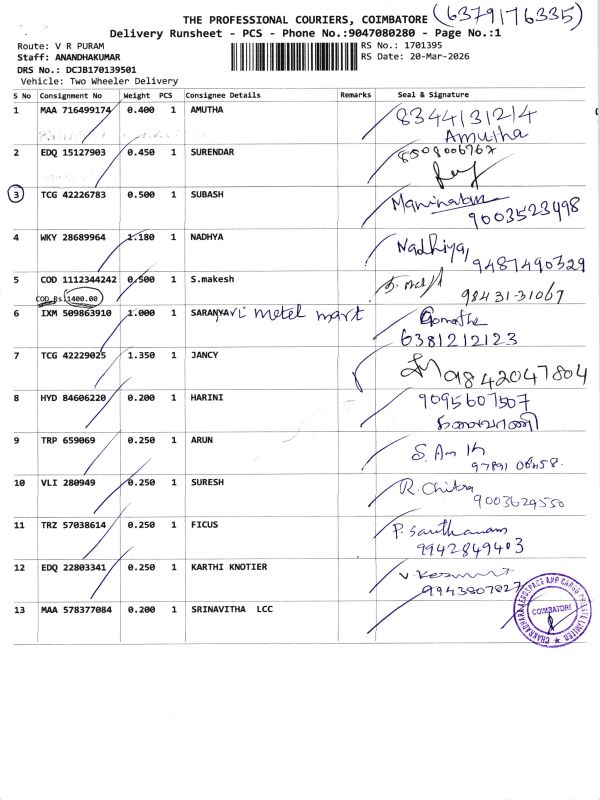 THE PROFESSIONAL COURIERS, COIMBATORE (6379176335)
Delivery Runsheet - PCS - Phone No.:9047080280 - Page No.:1
Route: V R PURAM RS No.: 1701395
Staff: ANANDHAKUMAR RS Date: 20-Mar-2026
DRS No.: DCJB170139501
Vehicle: Two Wheeler Delivery
S No Consignment No Weight PCS Consignee Details Remarks Seal & Signature
1 MAA 716499174 0.400 1 AMUTHA 8344131214
Amutha
2 EDQ 15127903 0.450 1 SURENDAR 8508006767
3 TCG 42226783 0.500 1 SUBASH
9003523498
4 WKY 28689964 1.180 1 NADHYA Nadhiya,
9487490329
5 COD 1112344242 0.500 1 S.makesh
COD Rs.1400.00 98431-31067
6 IXM 509863910 1.000 1 SARANYA metel mart
6381212123
7 TCG 42229025 1.350 1 JANCY 9842047804
8 HYD 84606220 0.200 1 HARINI 9095607507
9 TRP 659069 0.250 1 ARUN
10 VLI 280949 0.250 1 SURESH R. Chitra
9003629550
11 TRZ 57038614 0.250 1 FICUS P. Santhanam
9942849403
12 EDQ 22803341 0.250 1 KARTHI KNOTIER
9943807827
13 MAA 578377084 0.200 1 SRINAVITHA LCC
CHAKRADHARA AEROSPACE AND CARGO PRIVATE LIMITED
COIMBATORE